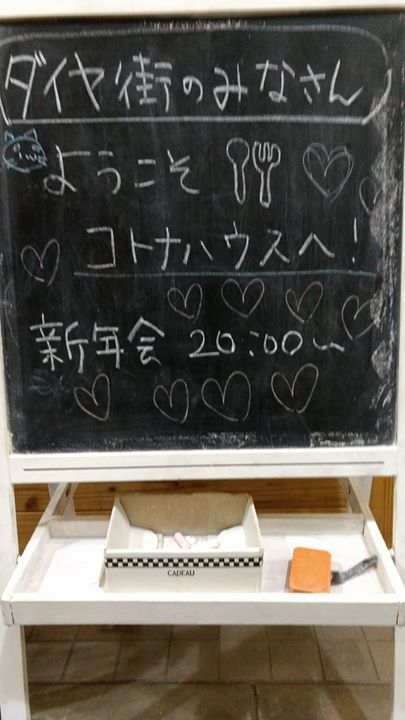 ダイヤ街のみなさん
ようこそ
コトナハウスへ!
新年会 20:00〜
CADEAU